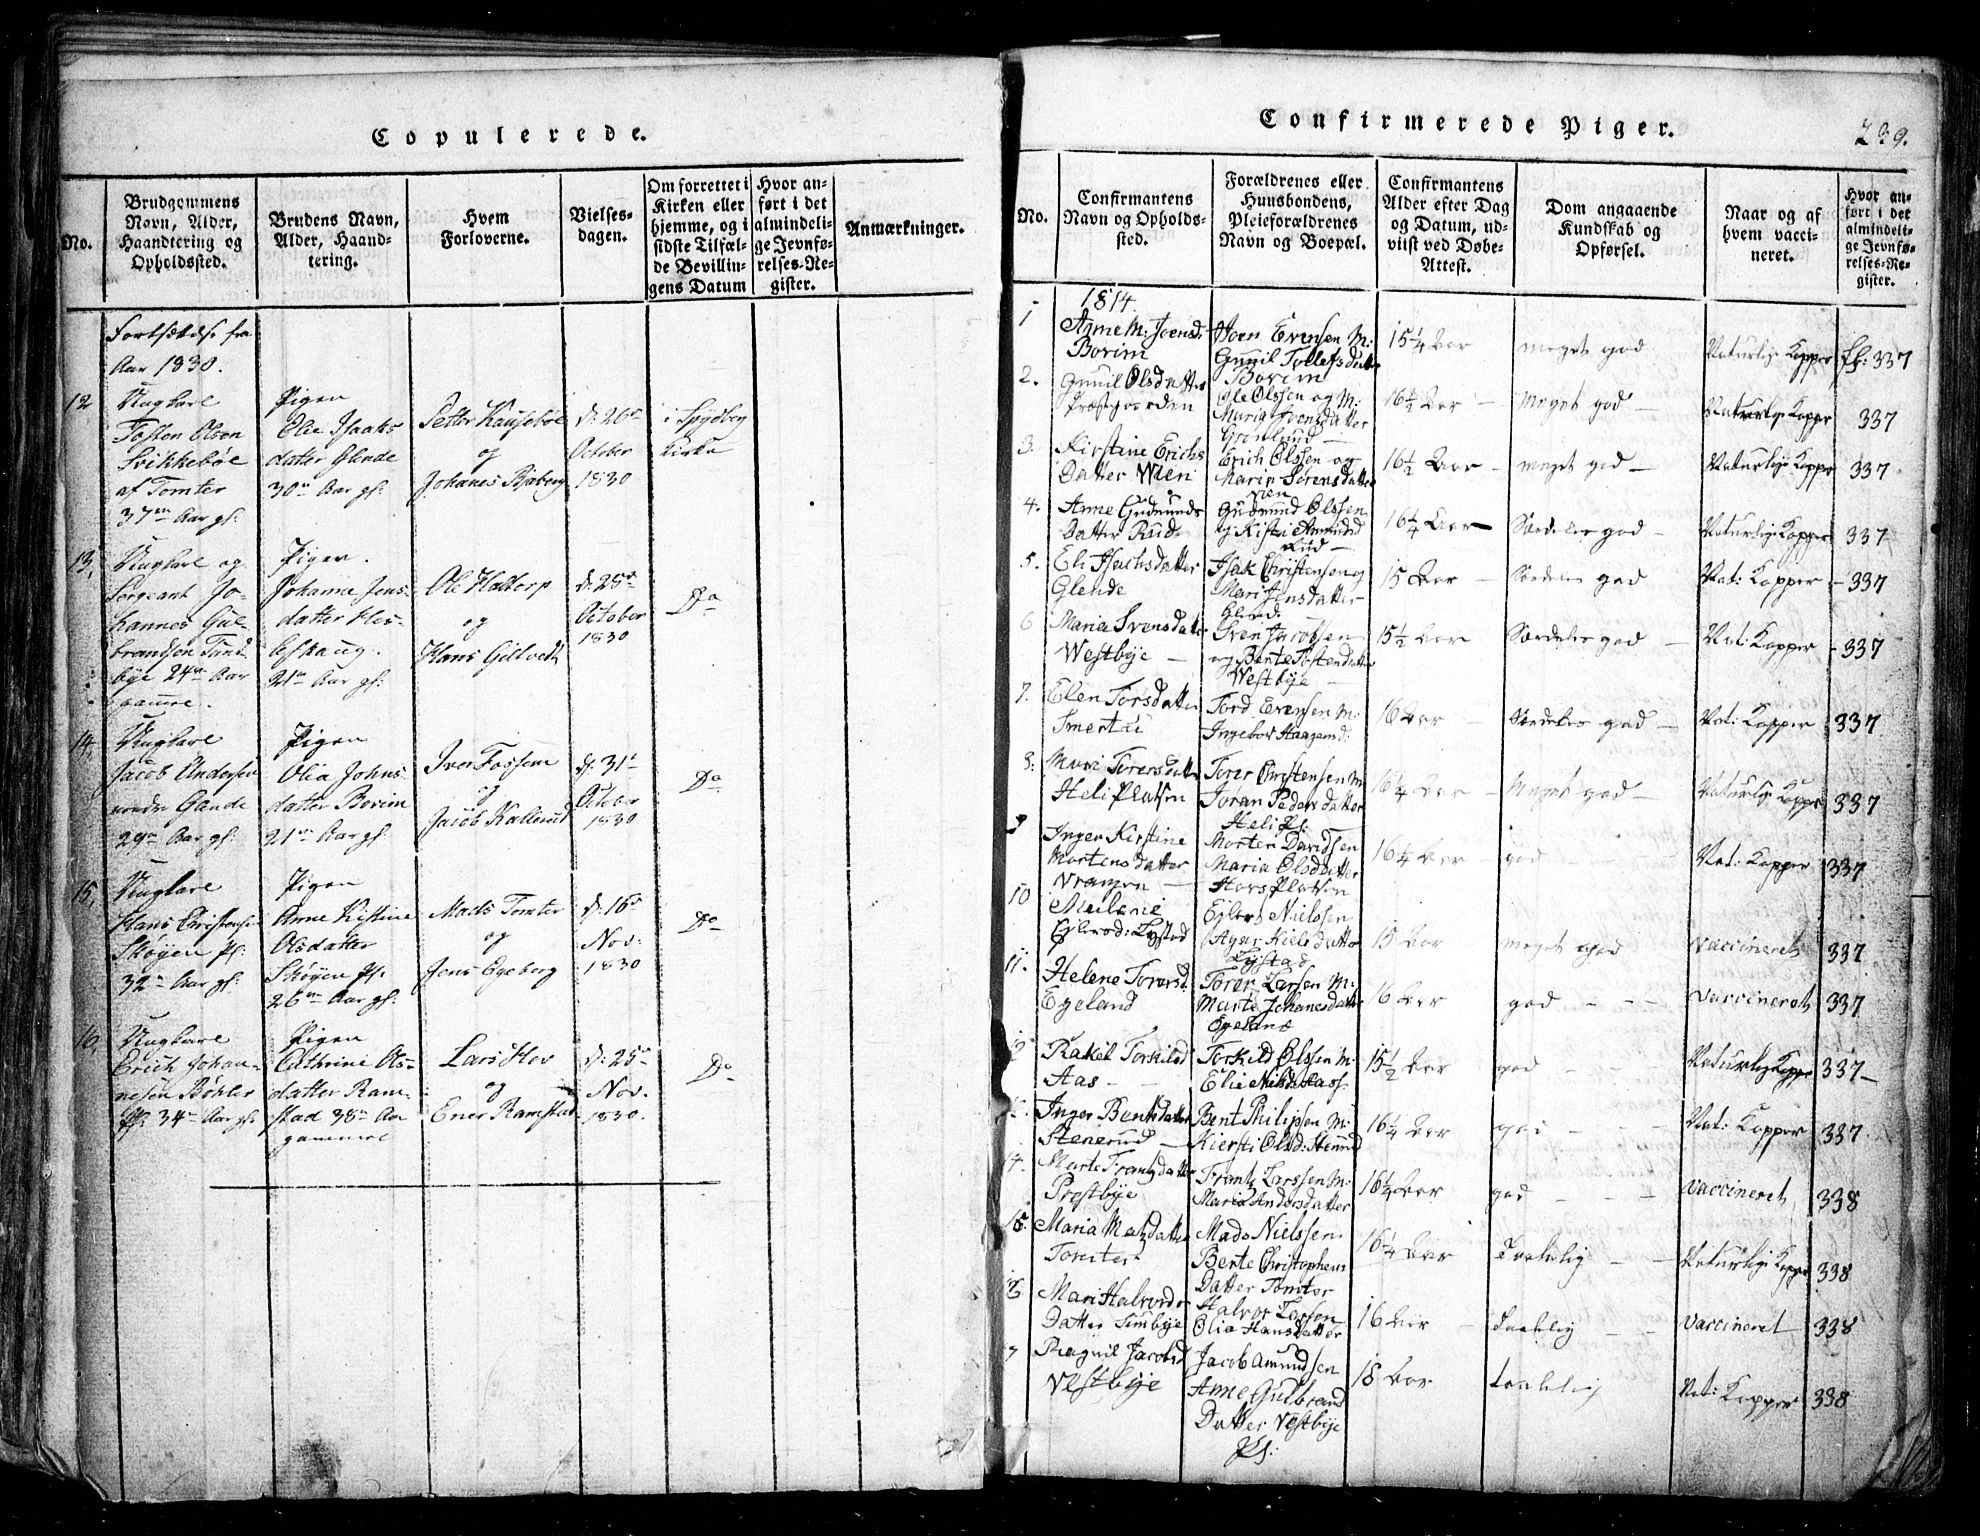 Copulerede.
No.
Brudgommens
Navn, Alder,
Haandtering og
Opholdssted.
Brudens Navn,
Alder, Haand-
tering.
Hvem
Forloverne.
Vielses-
dagen.
Om forrettet i
Kirken eller
hjemme, og i
sidste Tilfæl-
de Bevillin-
gens Datum
Hvor an-
ført i det
almindeli-
ge Jevnfø-
relses-Re-
gister.
Anmærkninger.
Fortsættelse fra
Aar 1830.
12
Ungkarl
Tosten Olsen
Svikkebøe
af Tomter
37 Aar gl:
Pigen
Elie Isaks
datter Glende
30 Aar gl:
Petter Kausebøe
og
Johanes Bjaberg
d: 26
October
1830
i Spydberg
Kirke
13,
Ungkarl og
Sergeant Jo-
hannes Gul-
brandsen Tund
bye 24 Aar
Pigen.
Johanne Jens-
datter Hes-
leskaug.
21 Aar gl:
Ole Haltorp
og
Hans Giltvedt
d: 28
October
1830
Do
14,
Ungkarl
Jacob Andersen
nordre Glende
29 Aar gl:
Pigen
Olia Johns-
datter Borim
21 Aar gl:
Iver Fossum
og
Jacob Kallerud
d: 31
October
1830
Do
15,
Ungkarl
Hans Christense
Skøyen Pl:
32 Aar gl:
Pigen
Anne Kistine
Olsdatter
Skøyen Pl:
26 Aar gl:
Mads Tomter
og
Jens Egeberg
d: 16
Nov:
1830
Do
16,
Ungkarl
Erich Johan-
nesen Bøhler
Pl: 34 Aar gl:
Pigen
Cathrine Ols-
datter Ram-
stad 38 Aar
gammel
Lars Hov
og
Ener Ramstad
d: 25
Nov.
1830.
Do
Confirmerede Piger.
239.
No.
Confirmantens
Navn og Opholds-
sted.
Forældrenes eller
Huusbondens,
Pleieforældrenes
Navn og Boepæl.
Confirmantens
Alder efter Dag
og Datum, ud-
viist ved Døbe-
Attest.
Dom angaaende
Kundskab og
Opførsel.
Naar og af
hvem vacci-
neret.
Hvor an-
ført i det
almindeli-
ge Jevnfø-
relses-Re-
gister.
1814
1
Anne M: Joensd:
Borim
Joen Evensen M:
Gunil Tollefsdatter
Borim
15 1/4 Aar
meget god
Naturlige Kopper
337
2.
Gunil Olsdatter
Præstgaarden
Ole Olssen og M:
Maria Svensdatter
Grønlund
16 1/2 Aar
Meget god
Naturlige Kopper
337
3.
Kirstine Erichs
Datter Wien
Erich Olssen og
Marie Sørensdatter
Vien
16 1/2 Aar
meget god
Naturlige Kopper
337
4.
Anne Gudmunds
Datter Rud
Gudmund Olssen
og Kistine Amunds
Rud
16 1/4 Aar
Særdeles god
Naturlige Kopper
337
5.
Eli Isachsdatter
Glende
Isak Christensen og
Mari Jensdatter
Glend.
15 Aar
Særdeles god
Nat: Kopper
337
6
Maria Svensdatter
Westbye
Sven Jacobsen
og Bente Tostendatter
Westbye
15 1/2 Aar
Særdeles god
Nat: Kopper
337
7.
Elen Torsdatter
Smertu
Tord Evensen M:
Ingebor Haagensd:
16 Aar
Særdeles god
Nat: Kopper
337
8:
Mari Torersdatter
Heli Platsen
Torer Christensen M
Jøran Pedersdatter
Heli Pl:
16 1/4 Aar
Meget god
Naturlige Kopper
337
9
Inger Kirstine
Mortensdatter
Morten Davidsen
Maria Olsdatter
Hovs Platsen
16 1/4 Aar
god
Nat: Kopper
337
10
Eilersd: Lystad
Eilert Nielssen
Lystad
15 Aar
meget god
vaccineret
337
11.
Helene Torersd.
Egeland
Torer Larssen M:
Marte Johanesdatter
Egeland
16 Aar
god
vaccineret
337
12
Rakel Torkilsd
Aas
Torkild Olssen M:
Elie Nilsd: Aas
15 1/2 Aar
god
Naturlig Kopper
337
Inger Bentsdatter
Stenerud
Bent Philipsen M:
Kiersti Olsd: Stenrud
16 1/4 Aar
god
Nat: Kopper
337
14.
Marte Frantzdatter
Prestbye
Frantz Larssen M:
Maria Andersdatter
16 1/4 Aar
god
vaccineret
338
15.
Maria Matzdatter
Tomter
Mads Nielssen
Bente Christophers
Datter Tomter
16 1/4 Aar
Taalelig
Naturlige Kopper
338
Mari Halvords
Datter Tunbye
Halvor Larsen
Olia Hansdatter
16 Aar
Taalelig
vaccineret
338
Ragnil Jacobsd
Vestbye
Jacob Amundsen
Anne Gulbrand
Datter Vestbye
Pl:
18 Aar
taalelig
Nat: Kopper
338